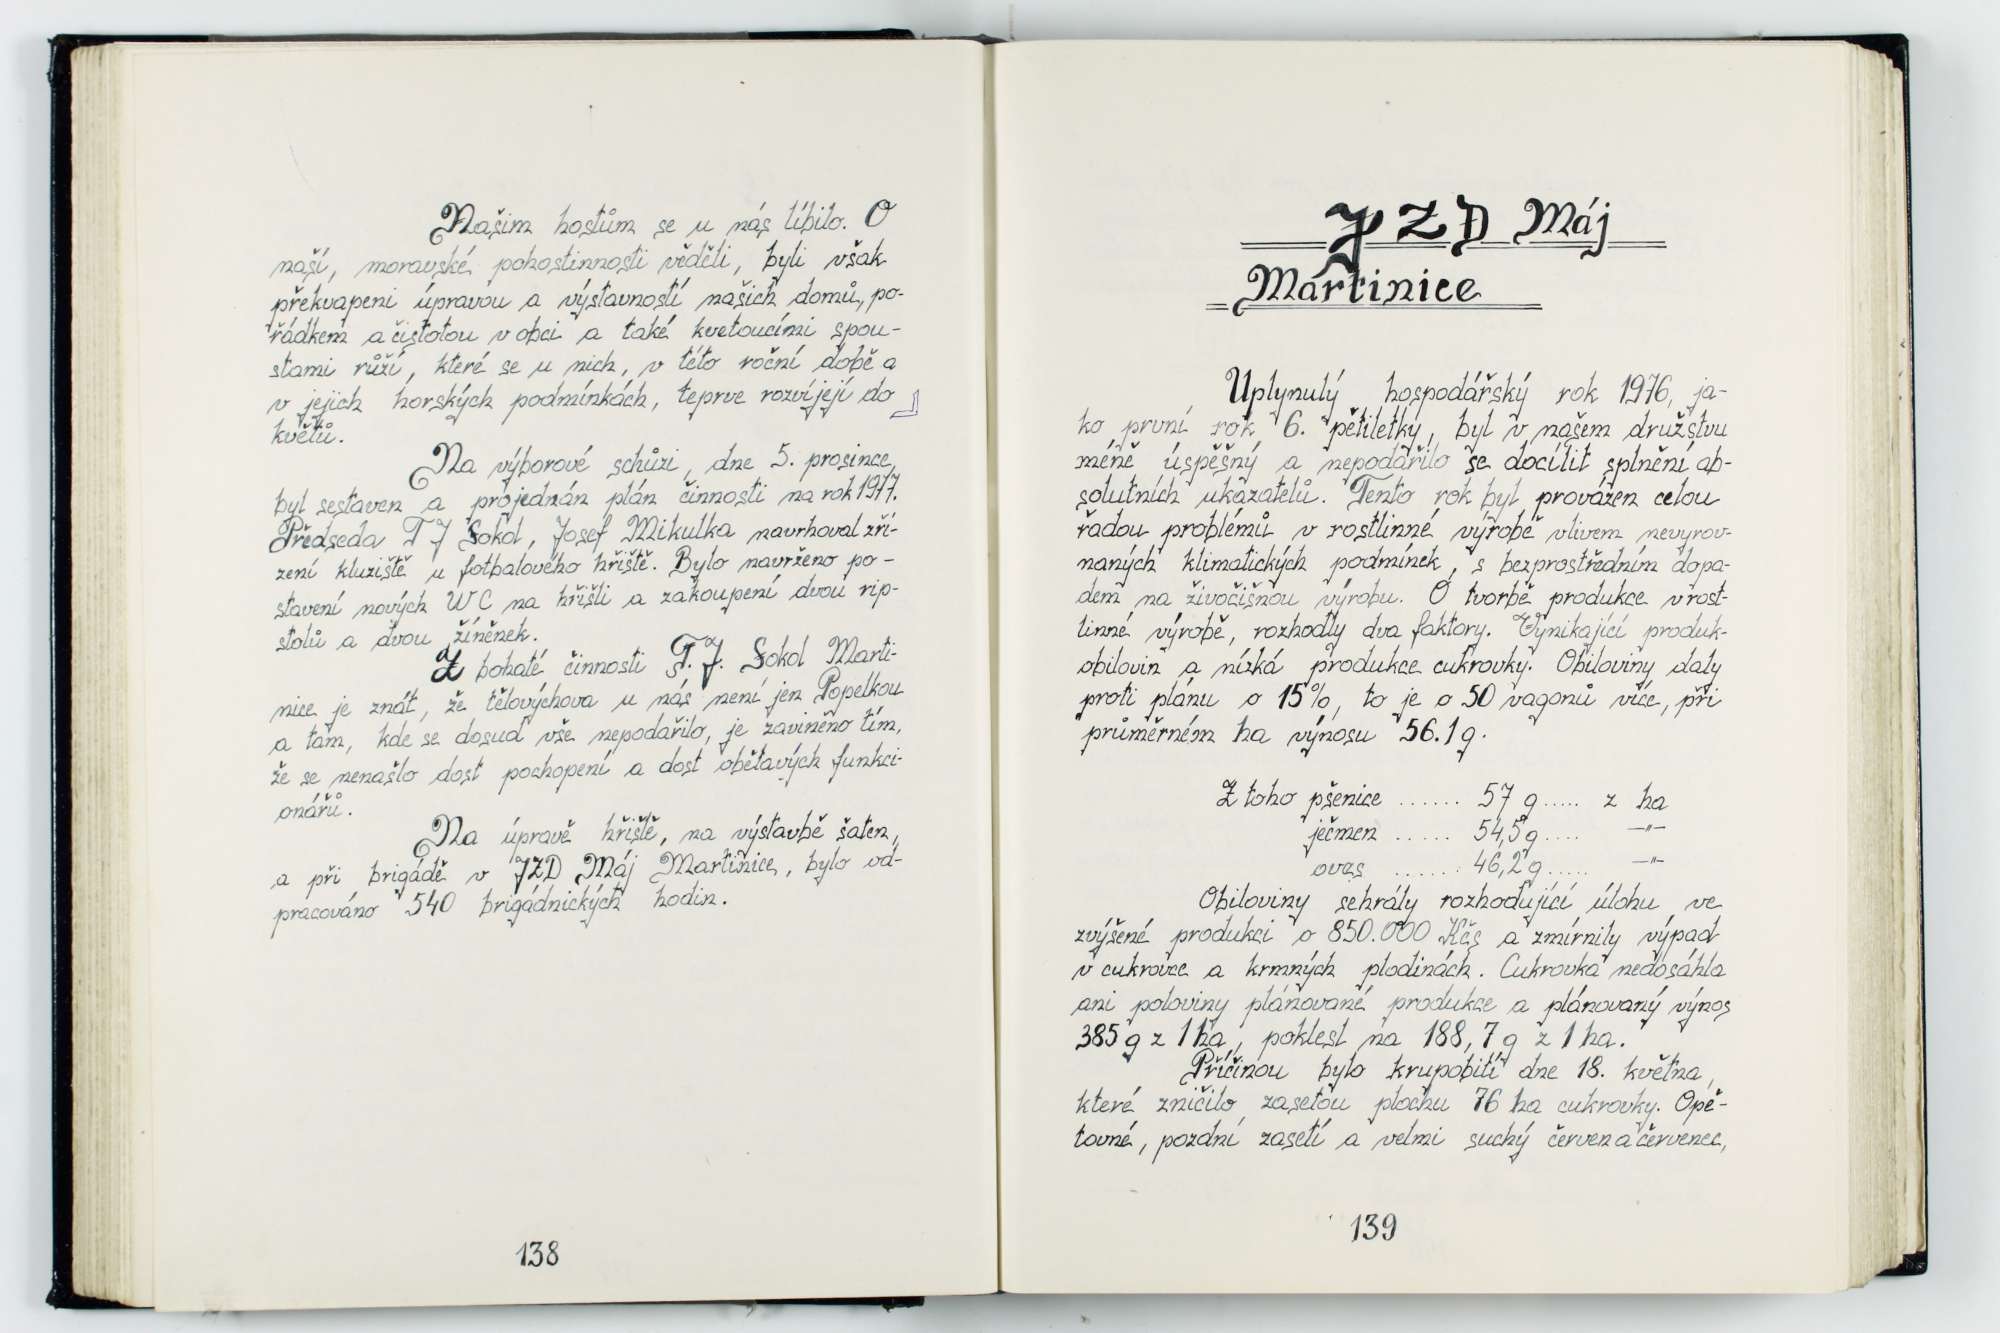 Našim hostům se u nás líbilo. O
naší, moravské pohostinnosti věděli, byli však
překvapeni úpravou a výstavností našich domů, po-
řádkem a čistotou v obci a také kvetoucími spou-
stami růží, které se u nich, v této roční době a
v jejich horských podmínkách, teprve rozvíjejí do
květů.
Na výborové schůzi, dne 5. prosince,
byl sestaven a projednán plán činnosti na rok 1977.
Předseda T J Sokol, Josef Mikulka navrhoval zří-
zení kluziště u fotbalového hřiště. Bylo navrženo po-
stavení nových WC na hřišti a zakoupení dvou rip-
stolů a dvou žíněnek.
Z bohaté činnosti T. J. Sokol Marti-
nice je znát, že tělovýchova u nás není jen Popelkou
a tam, kde se dosud vše nepodařilo, je zaviněno tím,
že se nenašlo dost pochopení a dost obětavých funkci-
onářů.
Na úpravě hřiště, na výstavbě šaten,
a při brigádě v JZD Máj Martinice, bylo od-
pracováno 540 brigádnických hodin.
138
JZD Máj
Martinice
Uplynulý hospodářský rok 1976, ja-
ko první rok 6. pětiletky, byl v našem družstvu
méně úspěšný a nepodařilo se docílit splnění ab-
solutních ukazatelů. Tento rok byl provázen celou
řadou problémů v rostlinné výrobě vlivem nevyrov-
naných klimatických podmínek, s bezprostředním dopa-
dem na živočišnou výrobu. O tvorbě produkce v rost-
linné výrobě, rozhodly dva faktory. Vynikající produk-
obilovin a nízká produkce cukrovky. Obiloviny daly
proti plánu o 15%, to je o 50 vagonů více, při
průměrném ha výnosu 56.1 q.
Z toho pšenice ...... 57 q ..... z ha
ječmen ...... 54,5 q .... —"—
oves ...... 46,2 q ..... —"—
Obiloviny sehrály rozhodující úlohu ve
zvýšené produkci o 850.000 Kčs a zmírnily výpad
v cukrovce a krmných plodinách. Cukrovka nedosáhla
ani poloviny plánované produkce a plánovaný výnos
385 q z 1 ha, poklesl na 188,7 q z 1 ha.
Příčinou bylo krupobití dne 18. května,
které zničilo zasetou plochu 76 ha cukrovky. Opě-
tovné, pozdní zasetí a velmi suchý červen a červenec,
139